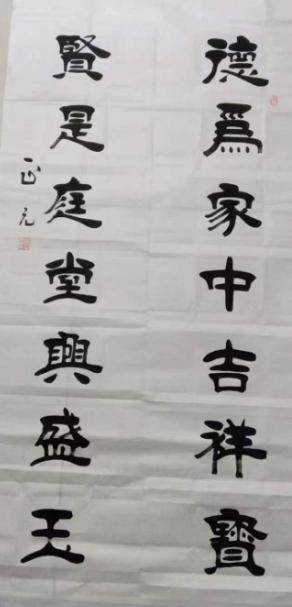 德爲家中吉祥寶
賢是庭堂興盛玉